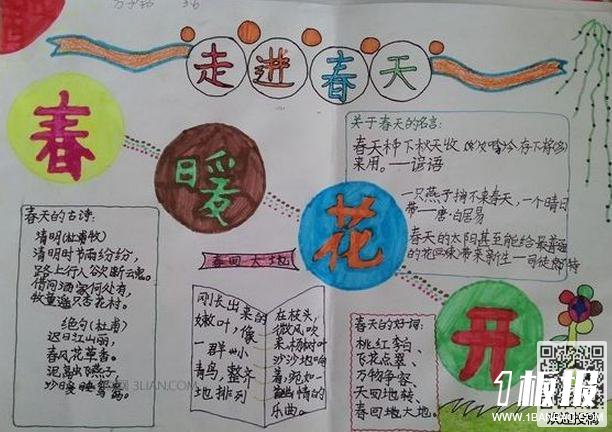 万子
3.6
走进春天
春暖花开
春天的古诗:
清明(杜牧)
清明时节雨纷纷,
路上行人欲断魂。
借问酒家何处有,
牧童遥只杏花村。
绝句(杜甫)
迟日江山丽,
春风花草香。
泥 飞燕子,
沙日暖睡鸳鸯。
春回大地
刚长出来的
嫩叶,像
一群小
鸟,整齐
地排列
在枝头,
微风吹
来杨树叶
沙沙地响
着,宛如一
情的
乐曲。
关于春天的名言:
春天 下秋天收
来用。——谚语
一只燕子捎不来春天,一个晴日
带——唐·白居易
春天的太阳甚至能给最
的花 带来新生——司徒
春天的好词:
桃红李白、
飞花点翠、
万物争容、
天回地转、
春回地大地。
3LIAN.COM
1板报
WWW.1BANBAO.COM
欢迎投稿